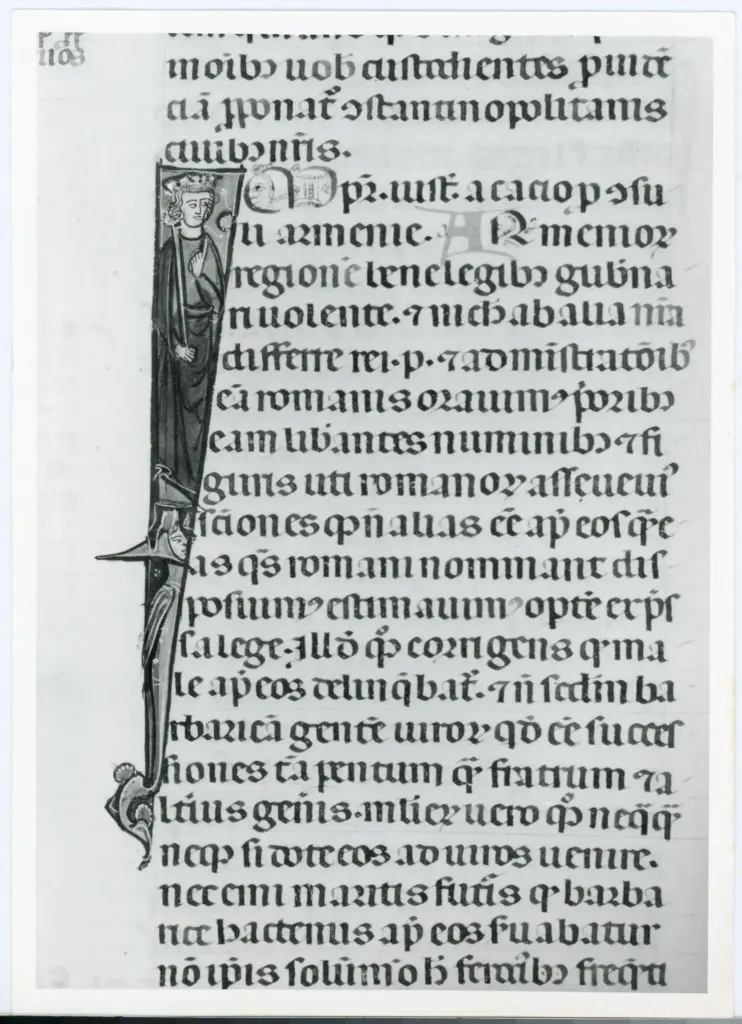 moribɔ uob custodientes puidē
ciā ꝓponat᷑ ɔstantinopolitanis
ciuibɔ nr̄is.
Im̄ pr̄. iust̄. acacio p ɔsu
li armenie. Armenioꝝ
regionē bene legibɔ gub̄na
ri uolentes. ⁊ nich̄ ab alia nr̄a
differre rei. p. ⁊ administratōib᷒
eā romanis orauim᷒ prioribɔ
eam lib̄antes numinibɔ ⁊ fi
guris uti romanoꝝ assueuim᷒
sctiones qꝫ n̄ alias eē ap̄ eos q̄ꝫ
as q̄s romani nominant dis
posuim᷒ estimauim᷒ optē exp̄s
sa lege. Illd̄ qꝫ corrigens q̄ ma
le ap̄ eos delinq̄bat᷑. ⁊ n̄ scdm̄ ba
rbaricā gentē uiroꝝ qd̄ eē succes
siones tā parentum q̄ꝫ fratrum ⁊ a
ltius gen̄is. mulieꝝ uero qꝫ neq̄q̄ꝫ
neqꝫ si dote eos ad uiros uenire.
nec emi maritis futris q̄ barba
rice hactenus ap̄ eos s̄uabatur
nō ip̄is solum̄o h̄ ferocibɔ freq̄ti